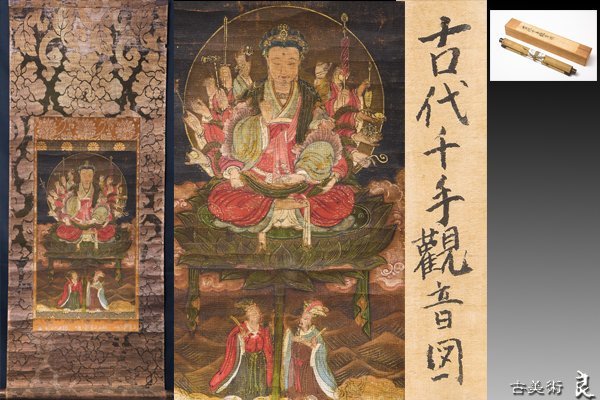 古代千手觀音図
古美術 良